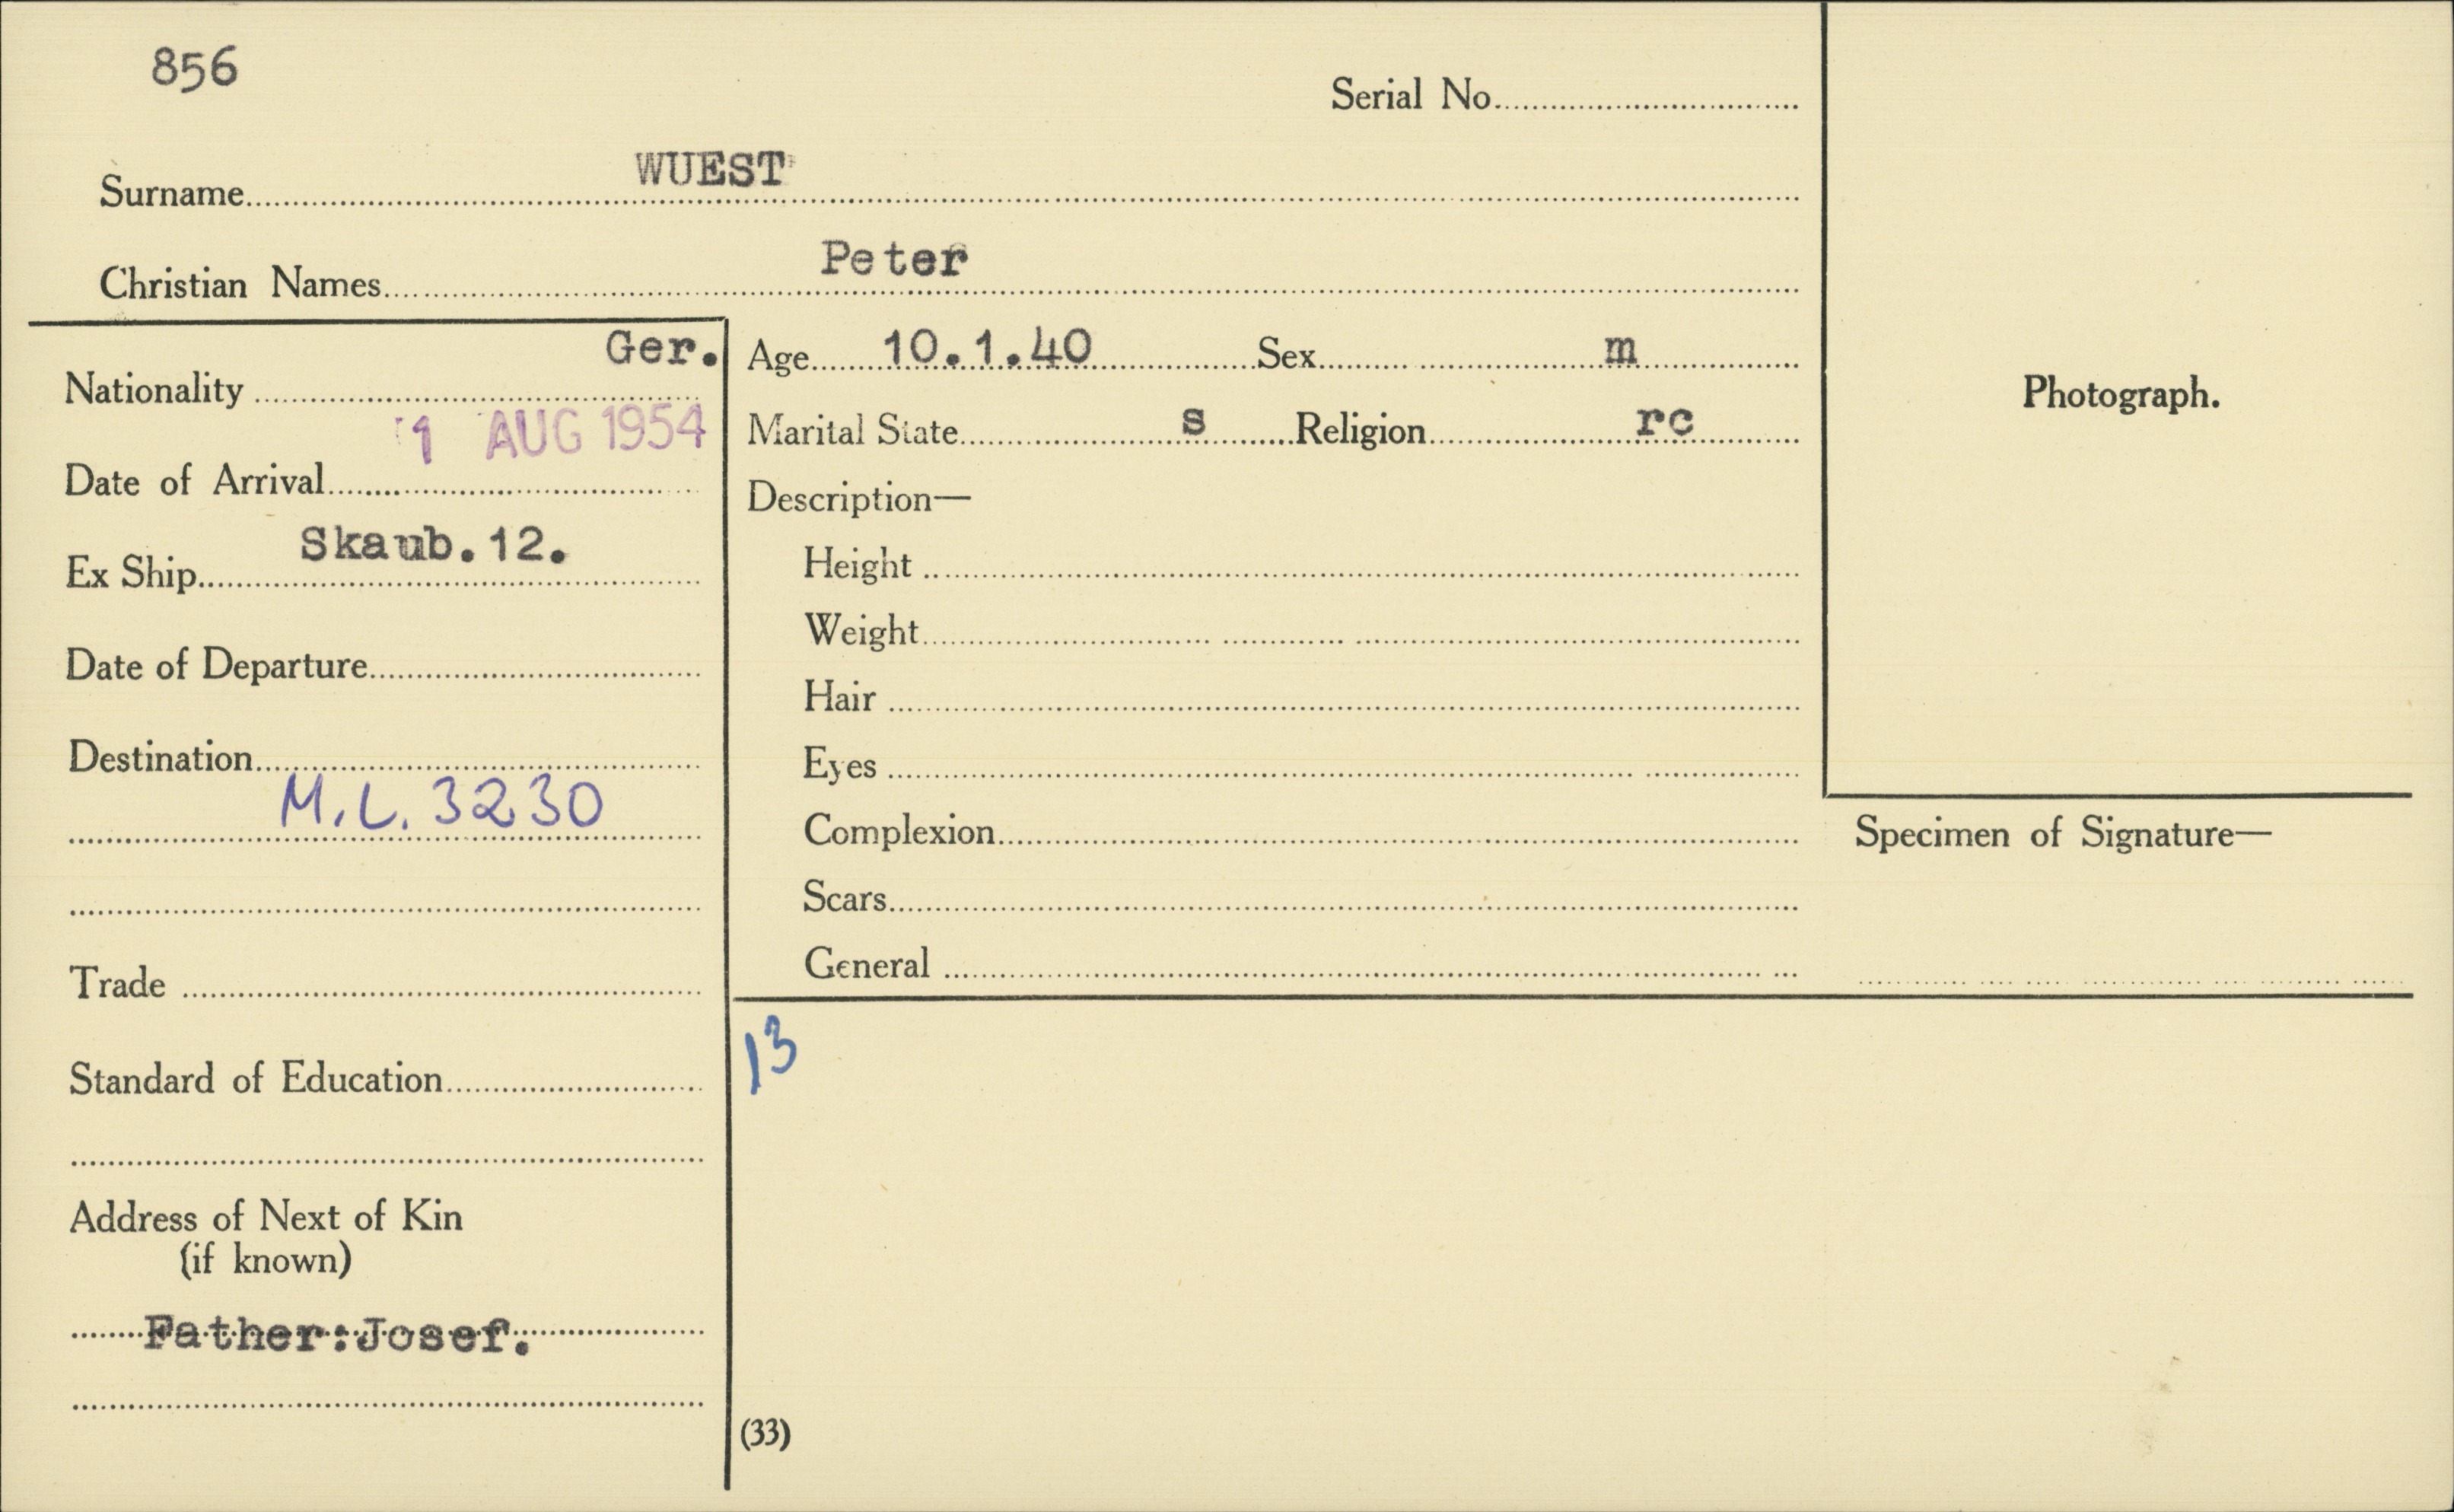 856
Serial No.
Surname WUEST
Christian Names Peter
Nationality Ger.
Date of Arrival 1 AUG 1954
Ex Ship Skaub.12.
Date of Departure
Destination
M.L. 3230
Trade
Standard of Education
Address of Next of Kin
(if known)
Father:Josef.
Age 10.1.40 Sex m
Marital State s Religion rc
Description—
Height
Weight
Hair
Eyes
Complexion
Scars
General
13
(33)
Photograph.
Specimen of Signature—